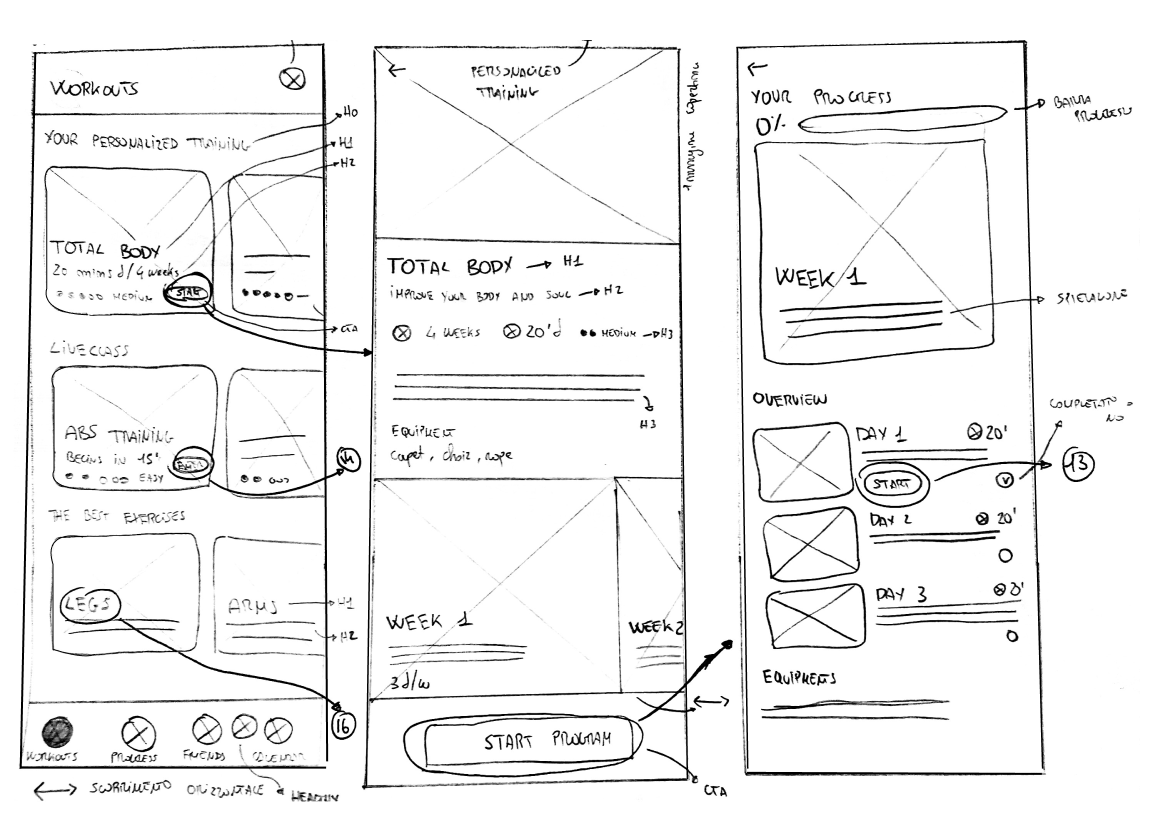 WORKOUTS
YOUR PERSONALIZED TRAINING
H0
H1
H2
TOTAL BODY
20 mins d/4 weeks
MEDIUM
START
CTA
LIVECLASS
ABS TRAINING
BEGINS IN 15'
EASY
14
THE BEST EXERCISES
LEGS
ARMS
H1
H2
16
WORKOUTS
PROGRESS
FRIENDS
SCORRIMENTO ORIZZONTALE
PERSONALIZED
TRAINING
TOTAL BODY → H1
IMPROVE YOUR BODY AND SOUL → H2
4 WEEKS 20'd MEDIUM → H3
H3
EQUIPMENT
WEEK 1
3 d/w
WEEK 2
START PROGRAM
CTA
YOUR PROGRESS
0%
BARRA
PROGRESSO
WEEK 1
SPIEGAZIONE
OVERVIEW
NO
DAY 1 20'
START
13
DAY 2 20'
DAY 3
EQUIPMENTS